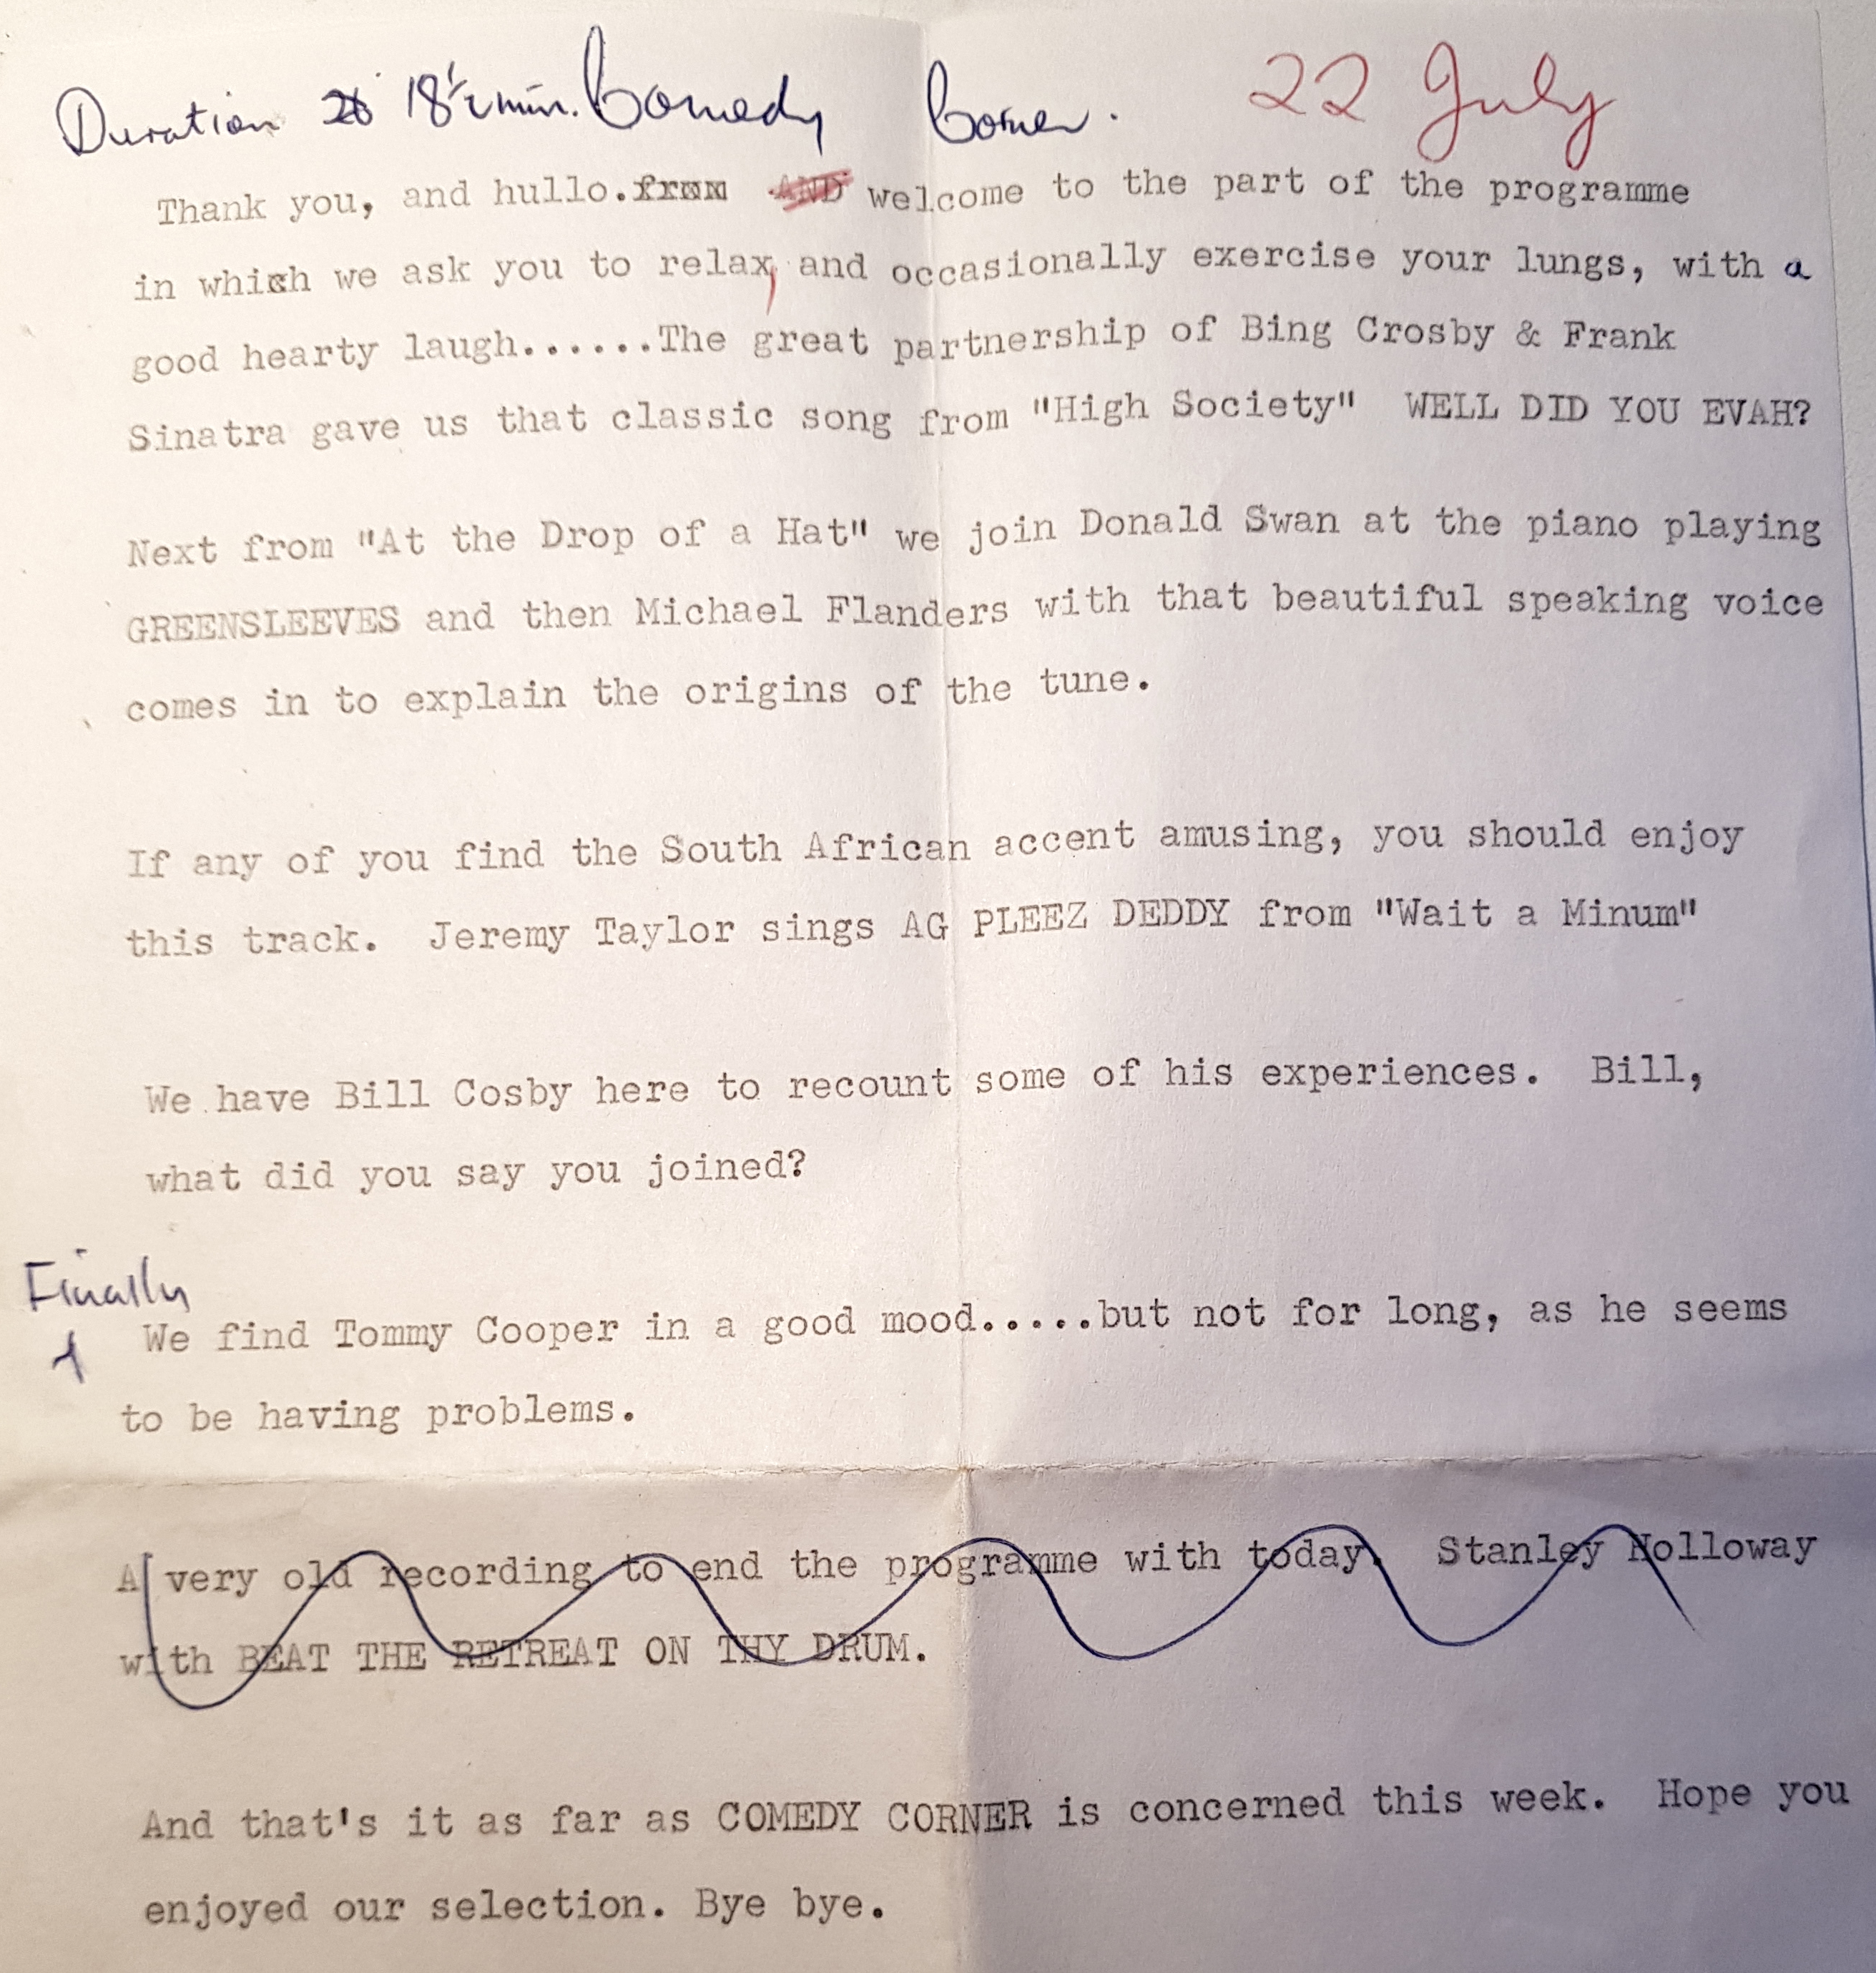 Duration 18½ min. Comedy Corner. 22 July
Thank you, and hullo. from AND welcome to the part of the programme
in which we ask you to relax, and occasionally exercise your lungs, with a
good hearty laugh......The great partnership of Bing Crosby & Frank
Sinatra gave us that classic song from "High Society" WELL DID YOU EVAH?
Next from "At the Drop of a Hat" we join Donald Swan at the piano playing
GREENSLEEVES and then Michael Flanders with that beautiful speaking voice
comes in to explain the origins of the tune.
If any of you find the South African accent amusing, you should enjoy
this track. Jeremy Taylor sings AG PLEEZ DEDDY from "Wait a Minum"
We have Bill Cosby here to recount some of his experiences. Bill,
what did you say you joined?
Finally
We find Tommy Cooper in a good mood.....but not for long, as he seems
to be having problems.
A very old recording to end the programme with today. Stanley Holloway
with BEAT THE RETREAT ON THY DRUM.
And that's it as far as COMEDY CORNER is concerned this week. Hope you
enjoyed our selection. Bye bye.